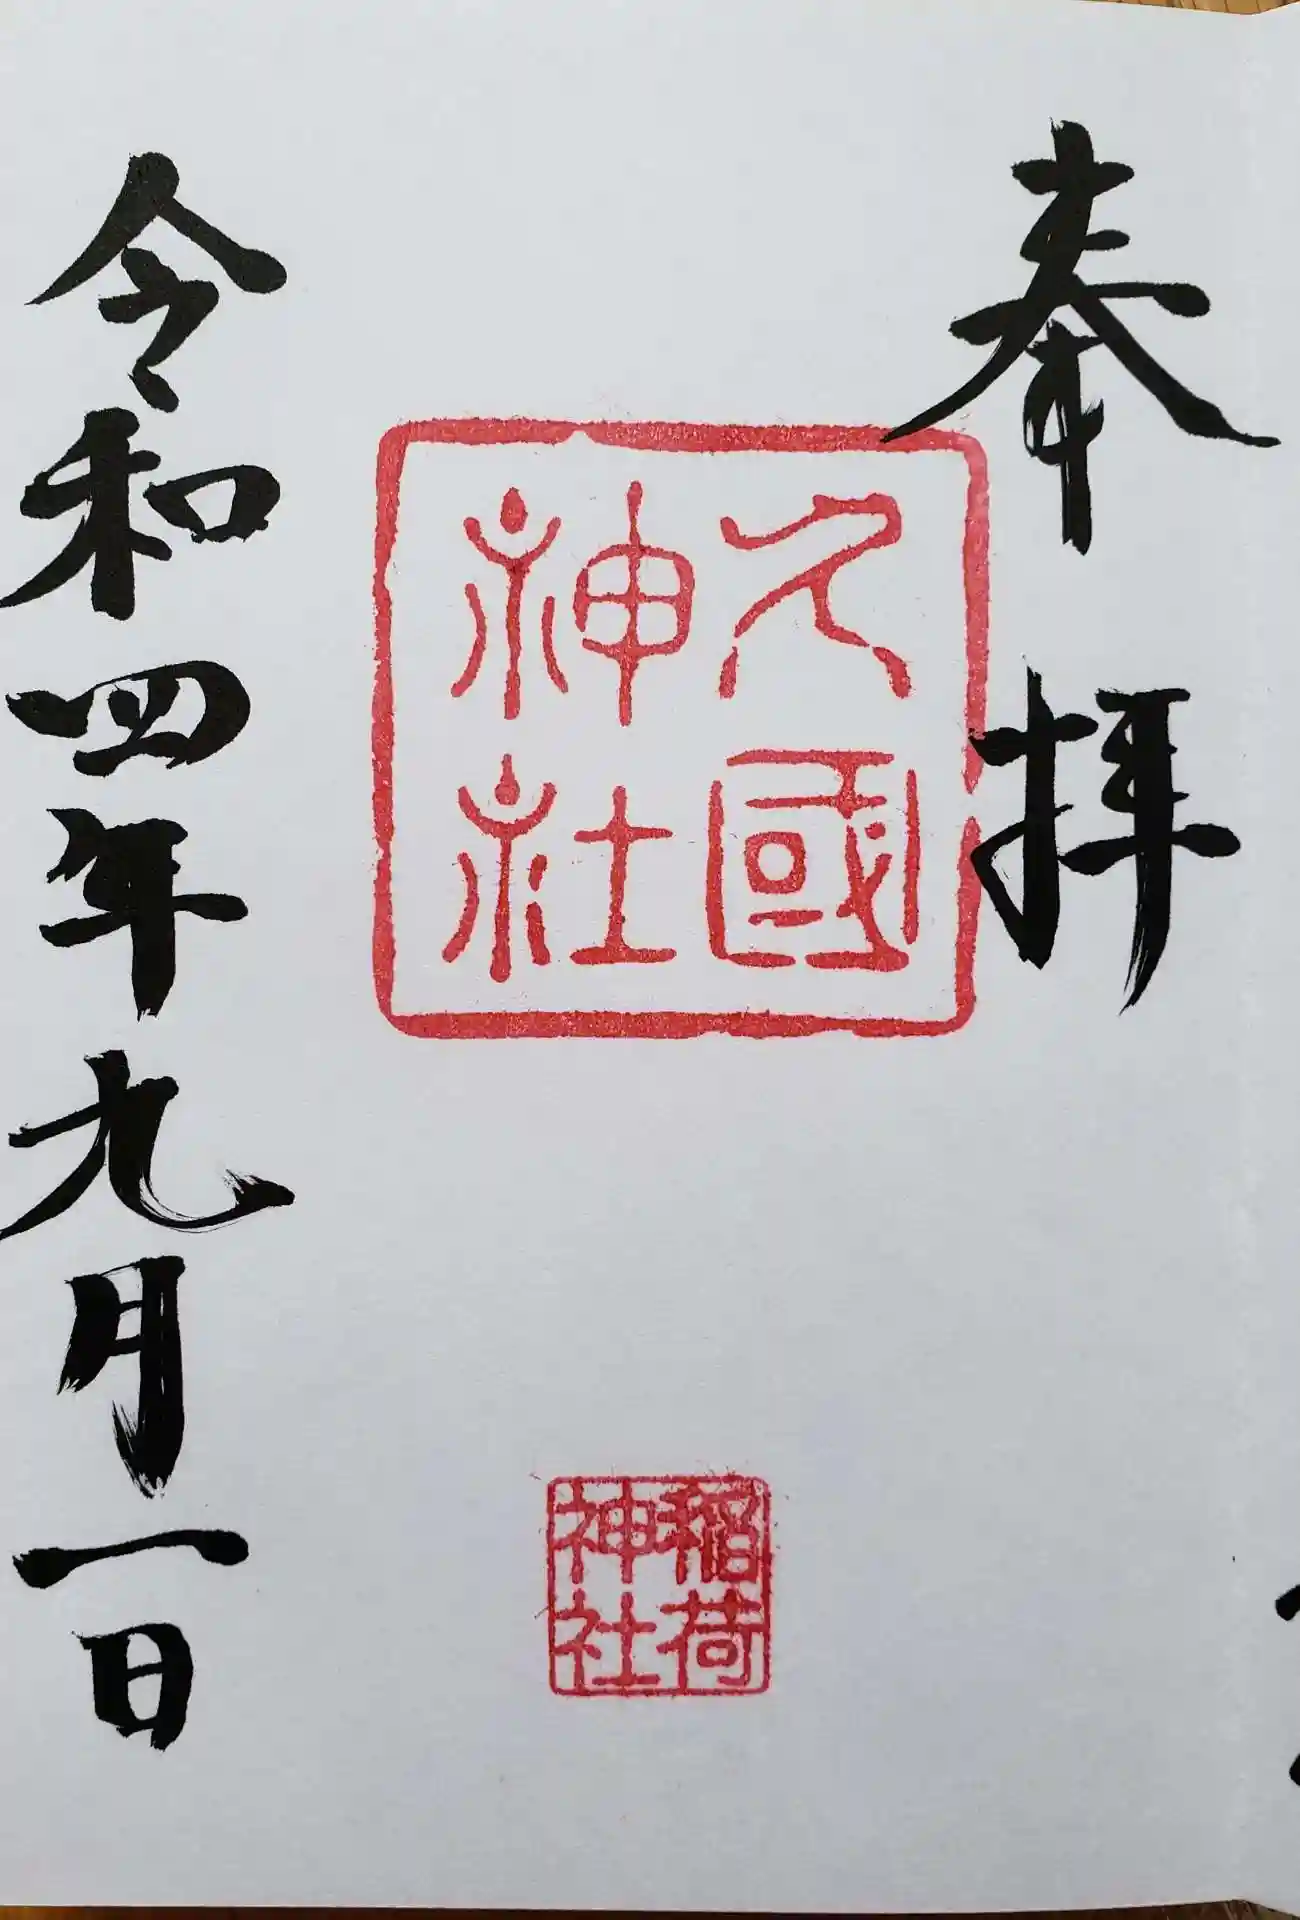 奉拝
久國
神社
稲荷
神社
令和四年九月一日